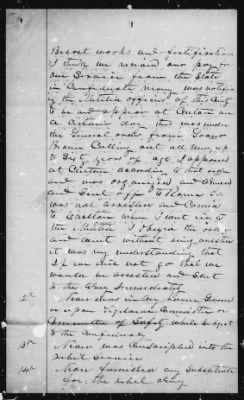 1
Breast works and fortifications
I think we received our pay for
our service from the State
in Confederate money was notified
by the Militia officers of this County
to be and appear at Clinton on
a certain day this was under
the General order from Gov
Brown Calling out all men up
to 50 years of age I appeared
at Clinton according to that order
and was organized and armed
and sent off to Rome I
was not arrested and carried
to Carlton when I went into
the Militia I obeyed the order
and went without being arrested
it was my understanding that
if we did not go that we
would be arrested and sent
to the Army immediately
2d Never was in any Home Guard
or upon Vigilance Committee or
Committee of Safety while subject
to the Confederacy
3rd Never was Conscripted into the
rebel service
14th Never furnished any substitute
for the rebel Army